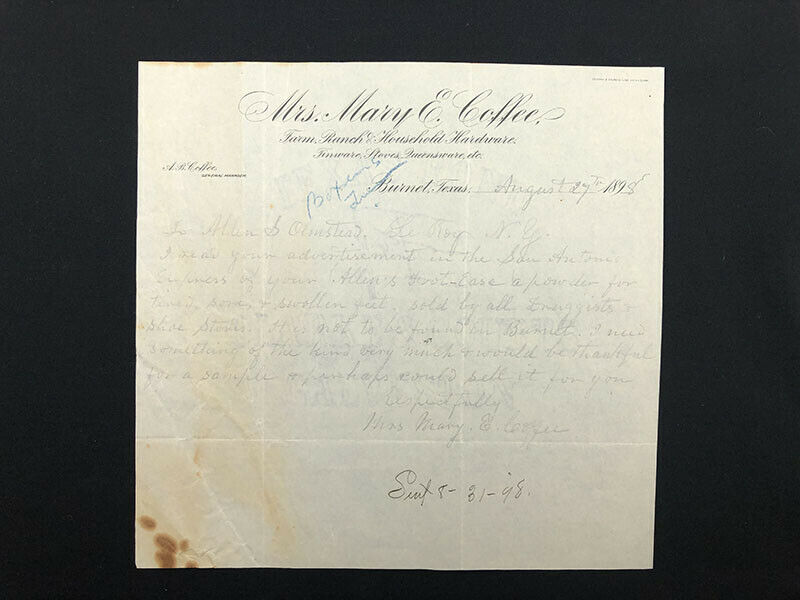 Mrs. Mary E. Coffee,
Farm, Ranch & Household Hardware.
Tinware, Stoves, Queensware, etc.
A. B. Coffee,
GENERAL MANAGER.
Burnet, Texas, August 27th 1898
To Allen S Olmstead. Le Roy N. Y.
I read your advertisement in the San Antonio
Express of your Allen's Foot-Ease a powder for
tired, sore, & swollen feet. sold by all Druggists &
Shoe Stores. It is not to be found in Burnet. I need
something of the kind very much & would be thankful
for a sample & perhaps could sell it for you
Respectfully
Mrs Mary. E. Coffee
Sent 8-31-98.